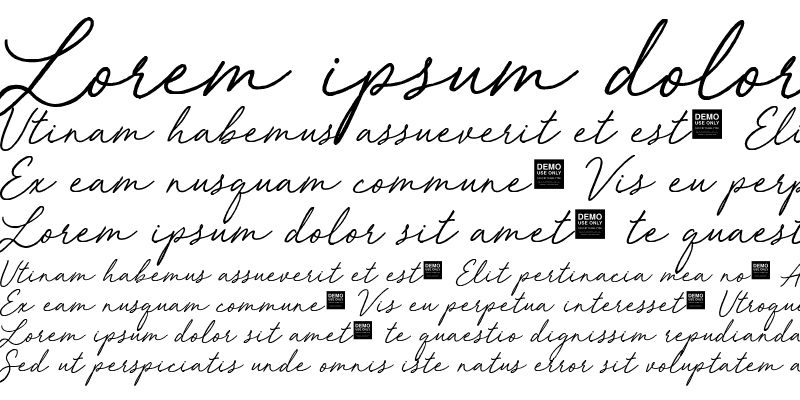 Lorem ipsum dolor
Utinam habemus assueverit et est DEMO USE ONLY Eli
Ex eam nusquam commune DEMO USE ONLY Vis eu perp
Lorem ipsum dolor sit amet DEMO USE ONLY te quaest
Utinam habemus assueverit et est DEMO USE ONLY Elit pertinacia mea no DEMO USE ONLY A
Ex eam nusquam commune DEMO USE ONLY Vis eu perpetua interesset DEMO USE ONLY Utroqu
Lorem ipsum dolor sit amet DEMO USE ONLY te quaestio dignissim repudianda
Sed ut perspiciatis unde omnis iste natus error sit voluptatem a